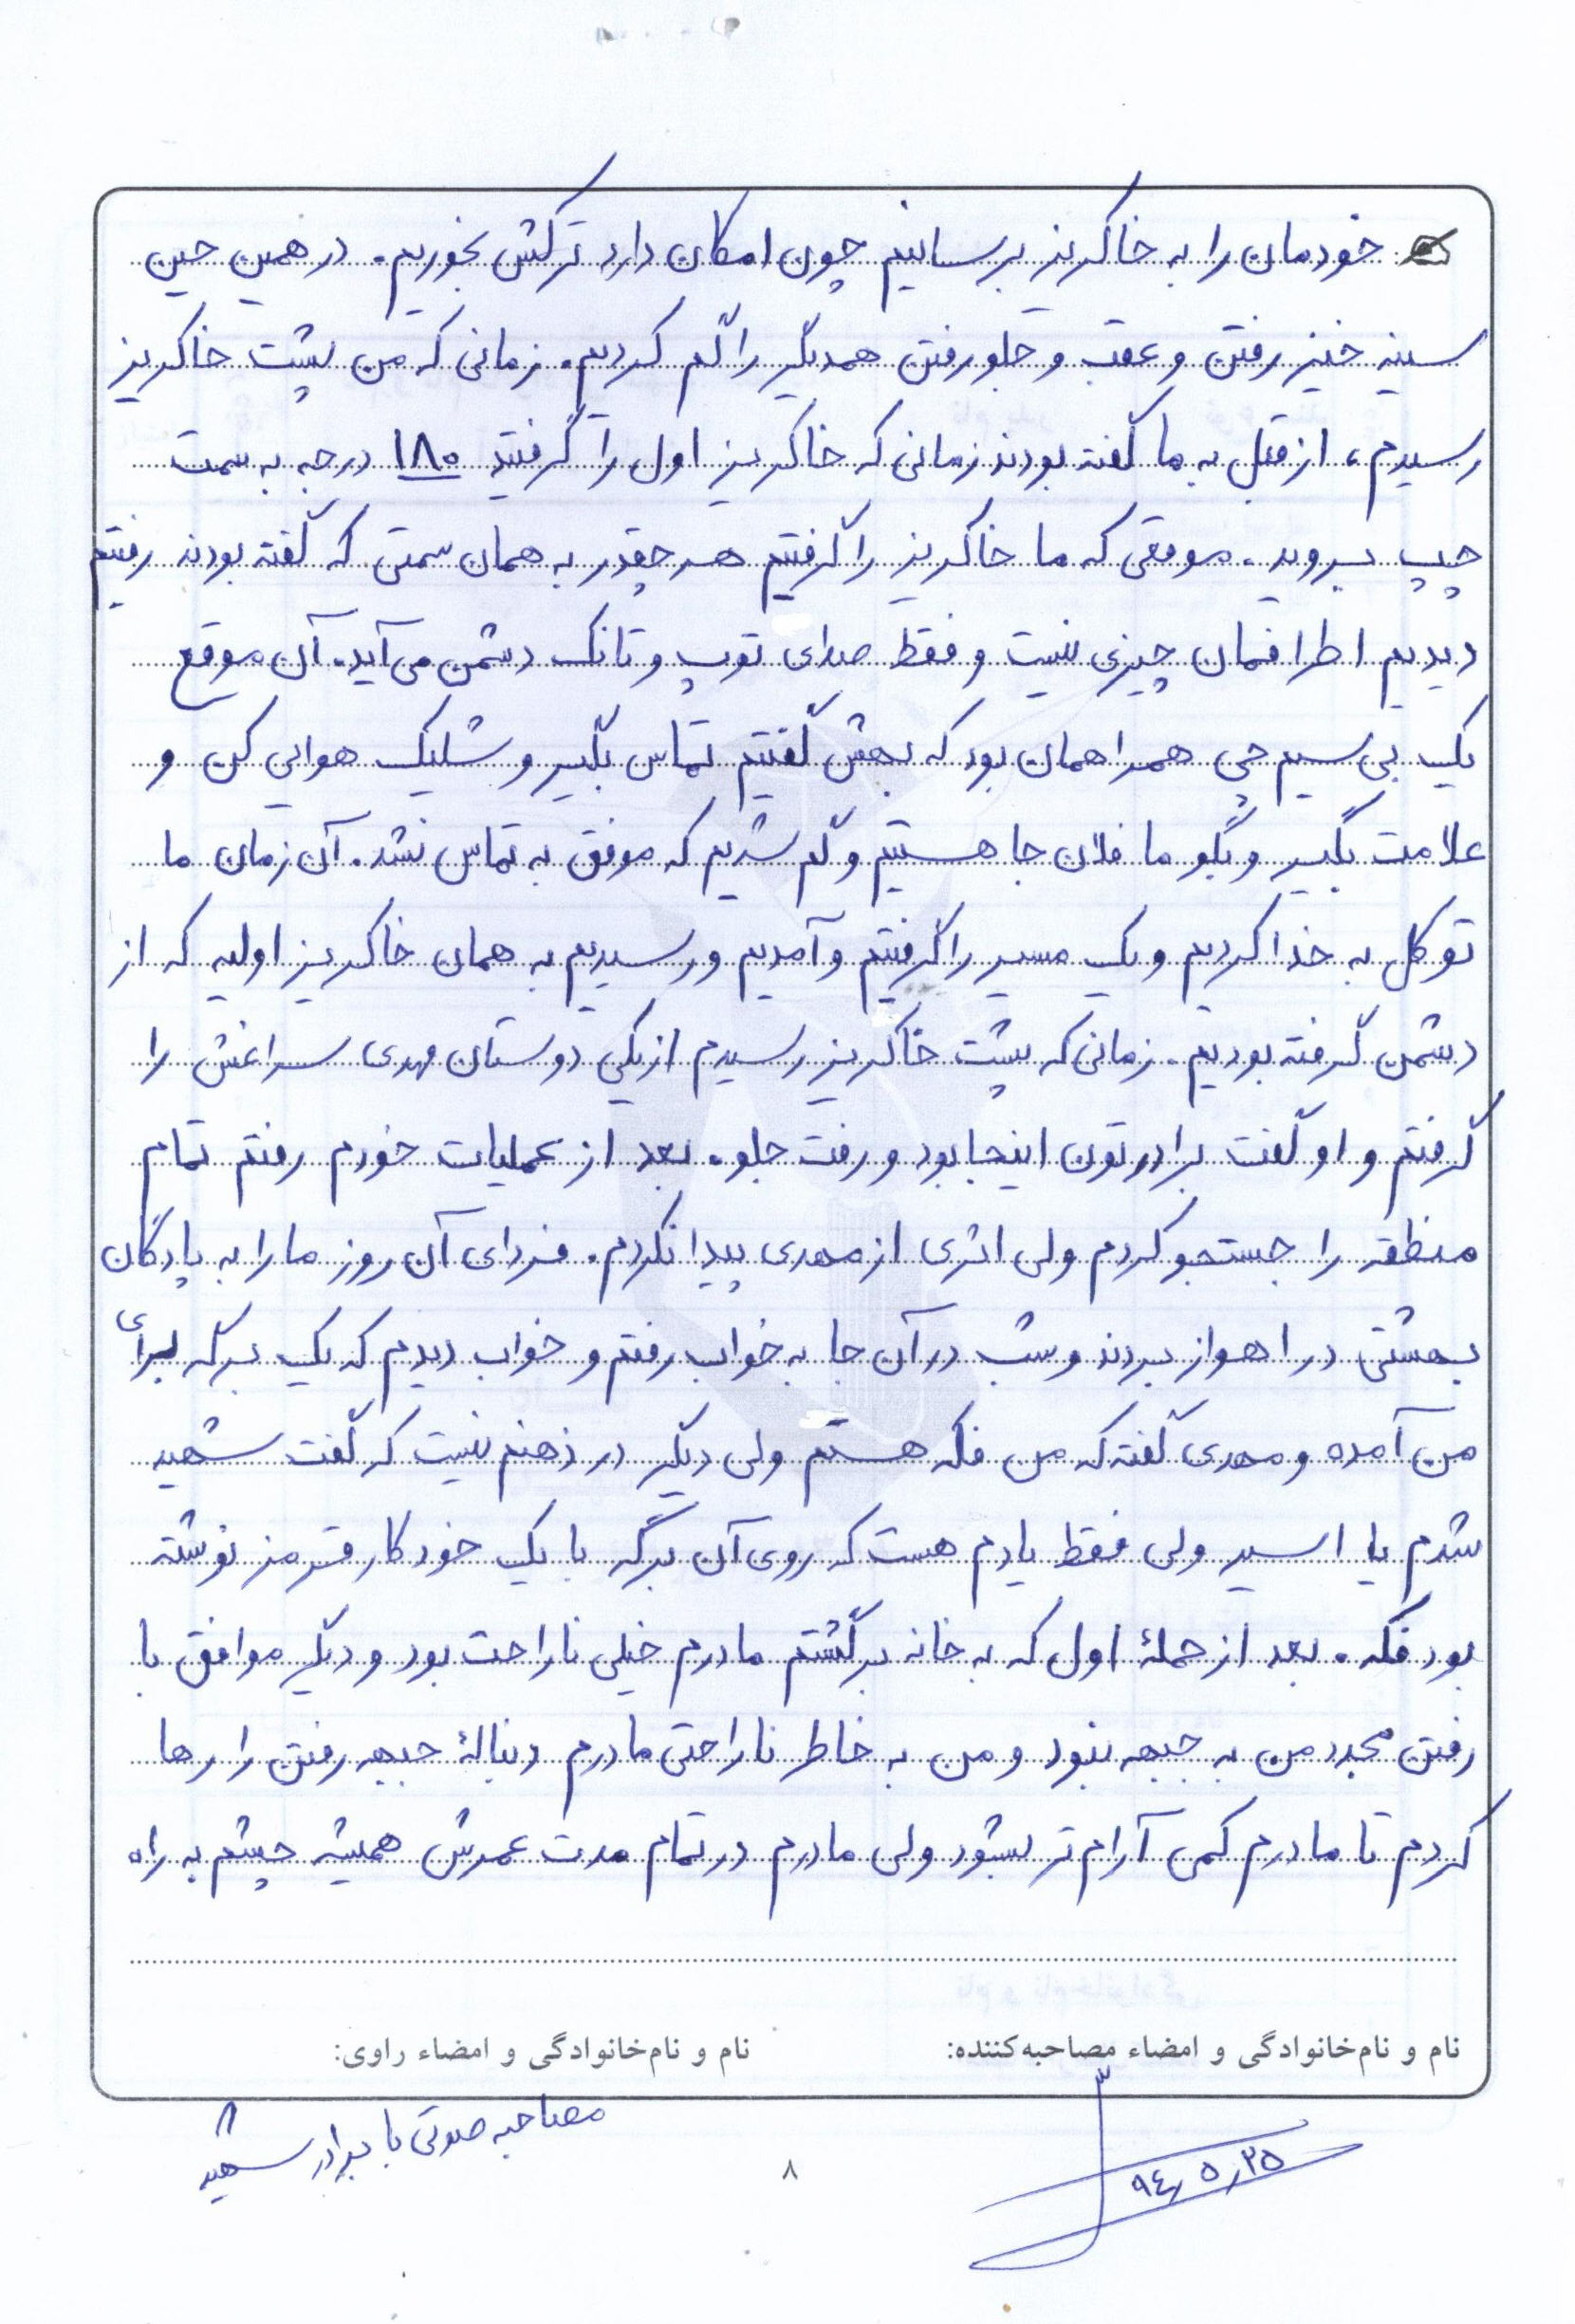 خودمان را به خاکریز برسانیم چون امکان دارد ترکش بخوریم. در همین حین
سینه خیز رفتن و عقب و جلو رفتن همدیگر را گم کردیم. زمانی که من پشت خاکریز
رسیدم، از قبل به ما گفته بودند زمانی که خاکریز اول را گرفتید ۱۸۰ درجه به سمت
چپ بروید. موقعی که ما خاکریز را گرفتیم هر چقدر به همان سمتی که گفته بودند رفتیم
دیدیم اطرافمان چیزی نیست و فقط صدای توپ و تانک دشمن می‌آید. آن موقع
یک بی سیم چی همراهمان بود که بهش گفتیم تماس بگیر و شلیک هوایی کن و
علامت بگیر و بگو ما فلان جا هستیم و گم شدیم که موفق به تماس نشد. آن زمان ما
توکل به خدا کردیم و یک مسیر را گرفتیم و آمدیم و رسیدیم به همان خاکریز اولیه که از
دشمن گرفته بودیم. زمانی که پشت خاکریز رسیدم از یکی دوستان مهدی سراغش را
گرفتم و او گفت برادرتون اینجا بود و رفت جلو. بعد از عملیات خودم رفتم تمام
منطقه را جستجو کردم ولی اثری از مهدی پیدا نکردم. فردای آن روز ما را به پادگان
بهشتی در اهواز بردند و شب در آن جا به خواب رفتم و خواب دیدم که یک برگه برای
من آمده و مهدی گفته که من فکه هستم ولی دیگر در ذهنم نیست که گفت شهید
شدم یا اسیر ولی فقط یادم هست که روی آن برگه با یک خودکار قرمز نوشته
بود فکه. بعد از حملهٔ اول که به خانه برگشتم مادرم خیلی ناراحت بود و دیگر موافق با
رفتن مجدد من به جبهه نبود و من به خاطر ناراحتی مادرم دنبالهٔ جبهه رفتن را رها
کردم تا مادرم کمی آرام تر بشود ولی مادرم در تمام مدت عمرش همیشه چشم به راه
نام و نام‌خانوادگی و امضاء مصاحبه‌کننده: نام و نام‌خانوادگی و امضاء راوی:
مصاحبه صوتی با برادر شهید
۹۴٫۵٫۲۵
۸